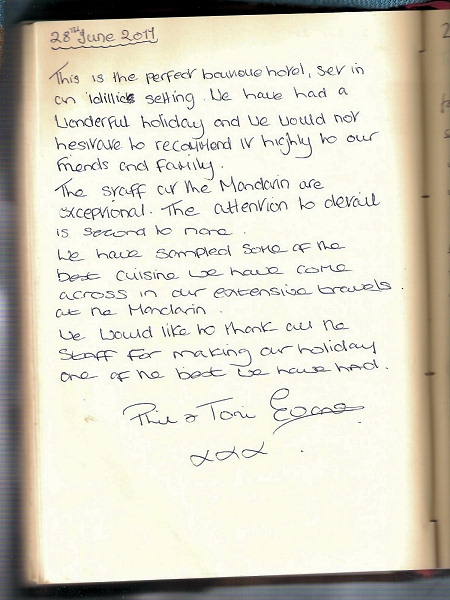 28TH June 2017
This is the perfect boutique hotel, set in
an idillick setting. We have had a
wonderful holiday and we would not
hesitate to recommend it highly to our
friends and family.
The staff at the Mandarin are
exceptional. The attention to detail
is second to none.
We have sampled some of the
best cuisine we have come
across in our extensive travels
at the Mandarin.
We would like to thank all the
staff for making our holiday
one of the best we have had.
Phil & Toni
xxx